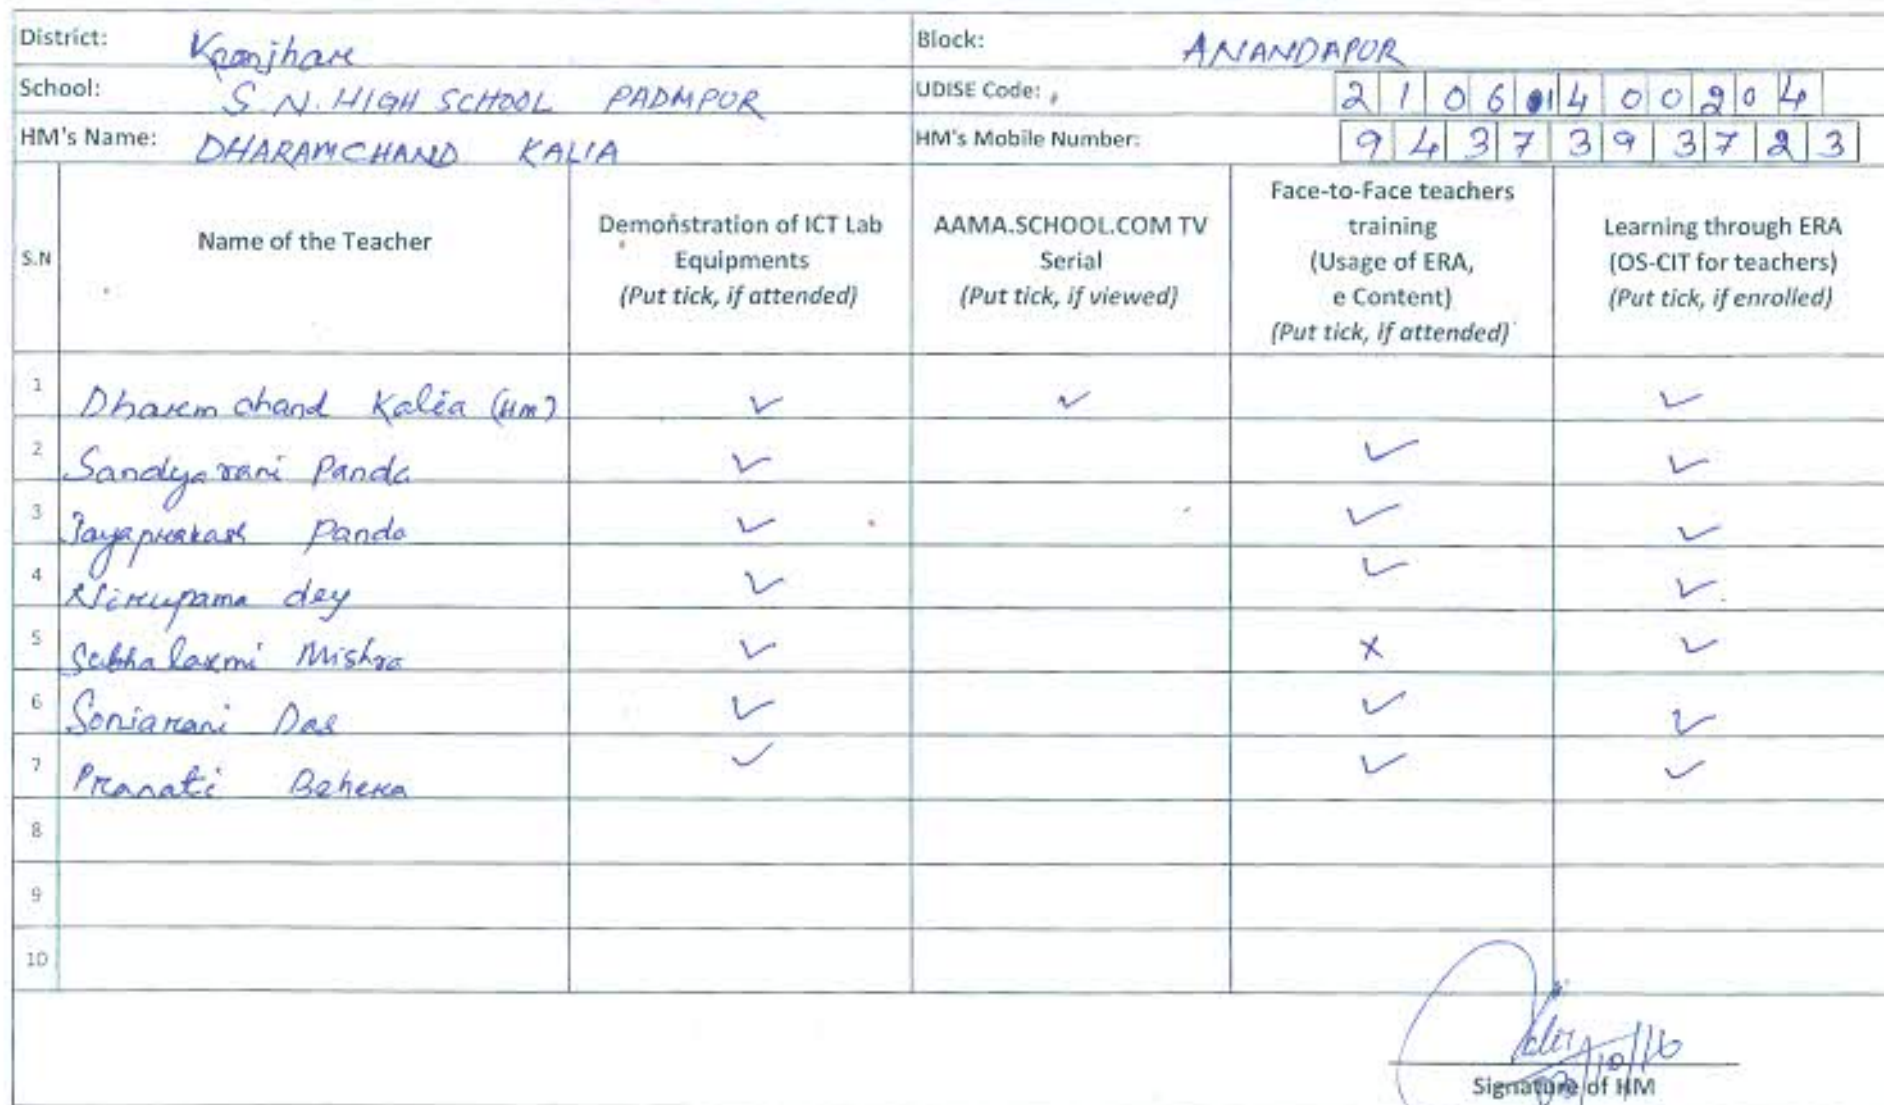 District: Keonjhar Block: ANANDAPUR
School: S.N. HIGH SCHOOL PADMPUR UDISE Code: 2 1 0 6 1 4 0 0 2 0 4
HM's Name: DHARAMCHAND KALIA HM's Mobile Number: 9 4 3 7 3 9 3 7 2 3
S.N Name of the Teacher Demonstration of ICT Lab Equipments (Put tick, if attended) AAMA.SCHOOL.COM TV Serial (Put tick, if viewed) Face-to-Face teachers training (Usage of ERA, e Content) (Put tick, if attended) Learning through ERA (OS-CIT for teachers) (Put tick, if enrolled)
1 Dharem chand Kalia (HM) ✓ ✓ ✓
2 Sandyarani Panda ✓ ✓ ✓
3 Jayaprakash Panda ✓ ✓ ✓
4 Nirupama dey ✓ ✓ ✓
5 Subhalaxmi Mishra ✓ x ✓
6 Soniarani Das ✓ ✓ ✓
7 Pranati Behera ✓ ✓ ✓
8
9
10
Signature of HM